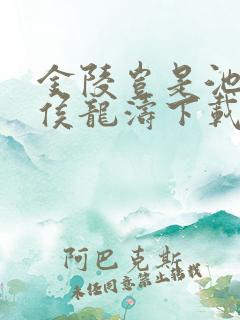 金陵岂是池
侯龍濤下載
阿巴克斯
未经同意禁止转载